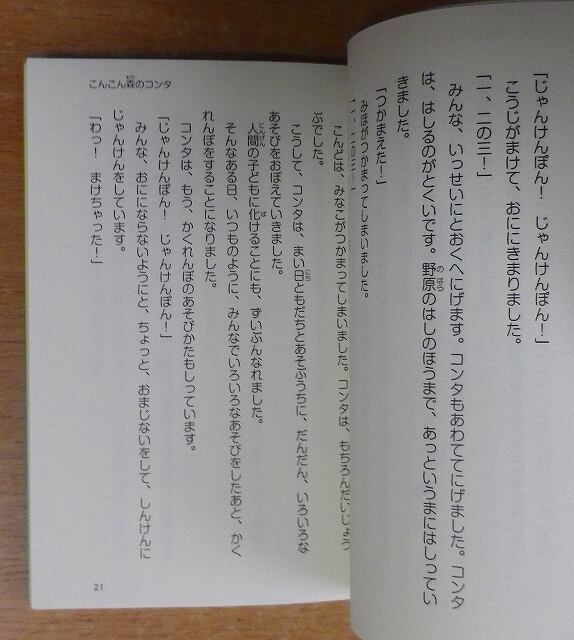 「じゃんけんぽん！　じゃんけんぽん！」
こうじがまけて、おににきまりました。
「一、二の三ー！」
みんな、いっせいにとおくへにげます。コンタもあわててにげました。コンタ
は、はしるのがとくいです。野原のはしのほうまで、あっというまにはしってい
きました。
「つかまえた！」
みほがつかまってしまいました。
こんどは、みなこがつかまってしまいました。コンタは、もちろんだいじょう
ぶでした。
こうして、コンタは、まい日ともだちとあそぶうちに、だんだん、いろいろな
あそびをおぼえていきました。
人間の子どもに化けることにも、ずいぶんなれました。
そんなある日、いつものように、みんなでいろいろなあそびをしたあと、かく
れんぼをすることになりました。
コンタは、もう、かくれんぼのあそびかたもしっています。
「じゃんけんぽん！　じゃんけんぽん！」
みんな、おににならないようにと、ちょっと、おまじないをして、しんけんに
じゃんけんをしています。
「わっ！　まけちゃった！」
こんこん森のコンタ
21